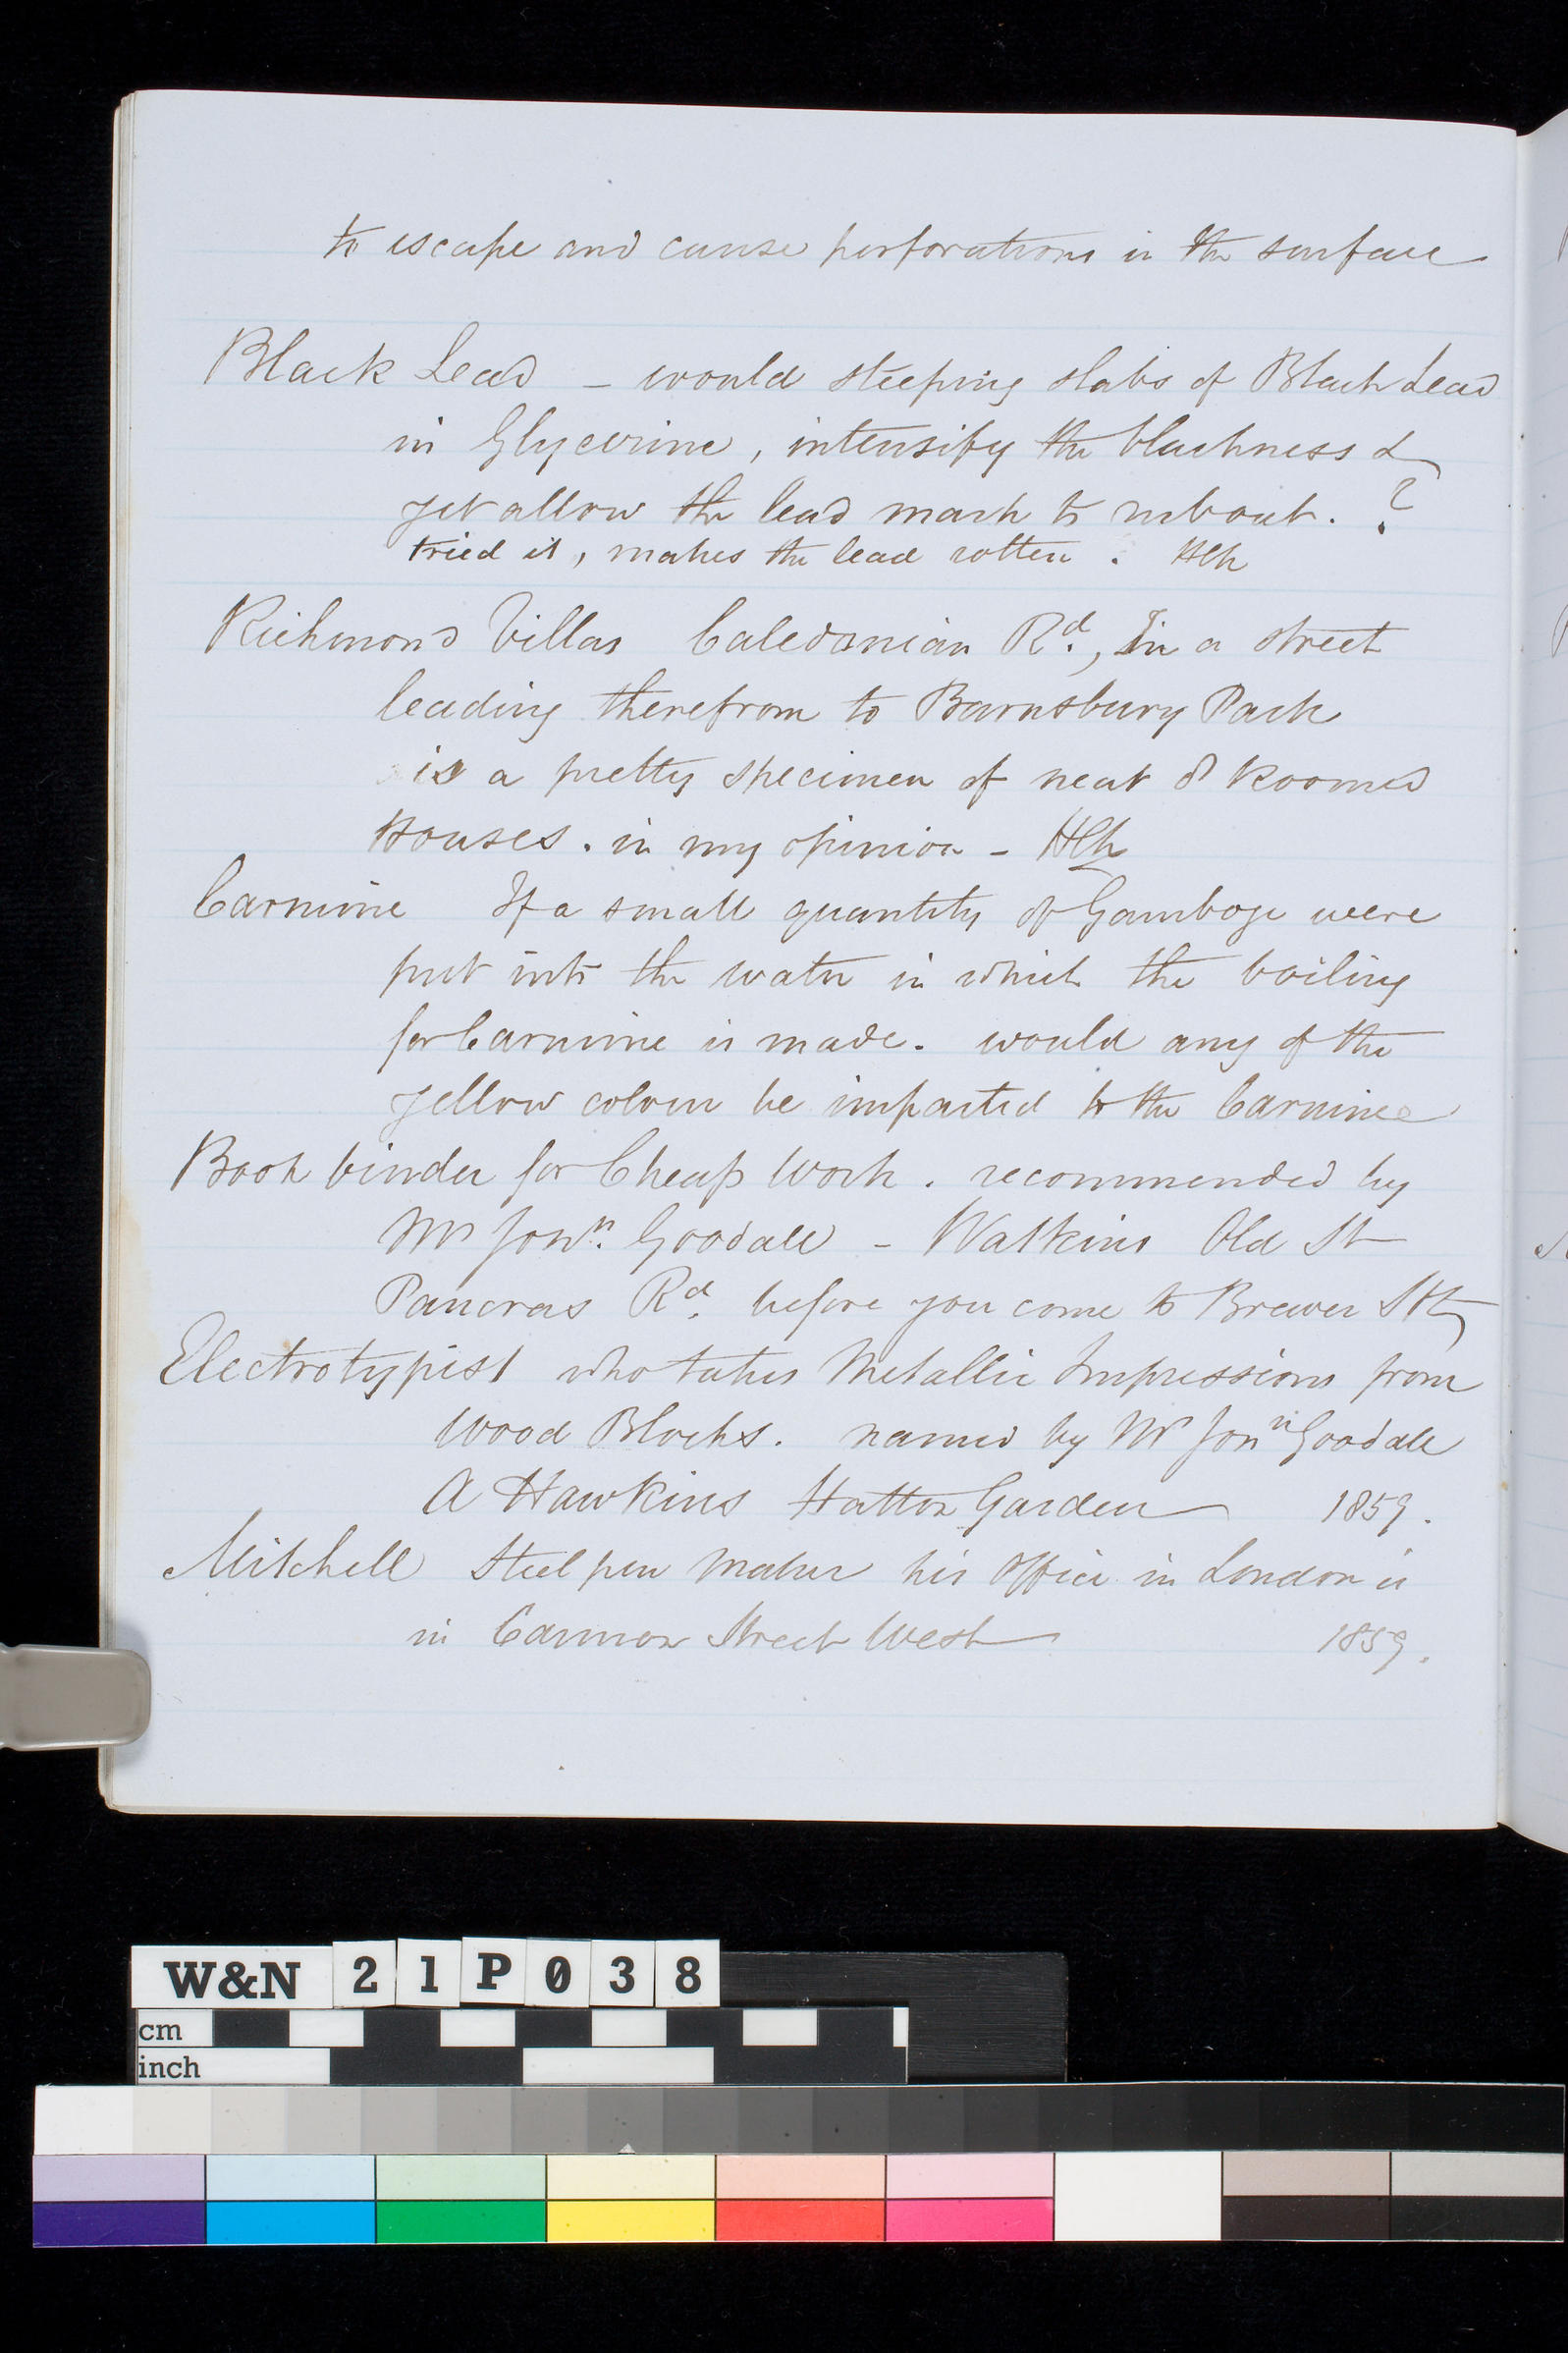 to escape and cause perforations in the surface
Black Lead – would steeping slabs of Black Lead
in Glycerine, intensify the blackness &
yet allow the lead mark to rub out. ?
tried it, makes the lead rotten. HCh
Richmond Villas Caledonian Rd., In a street
leading therefrom to Barnsbury Park
is a pretty specimen of neat 8 Roomed
Houses. in my opinion – HCh
Carmine If a small quantity of Gamboge were
put into the water in which the boiling
for Carmine is made. would any of the
yellow colour be imparted to the Carmine
Book binder for Cheap Work. recommended by
Mr Jonn. Goodall – Watkins Old St
Pancras Rd. before you come to Brewer St
Electrotypist who takes Metallic Impressions from
Wood Blocks. named by Mr Jonn Goodall
A Hawkins Hatton Garden 1859.
Mitchell Steel pen Maker his office in London is
in Cannon Street West 1859.
W&N 21P038
cm
inch